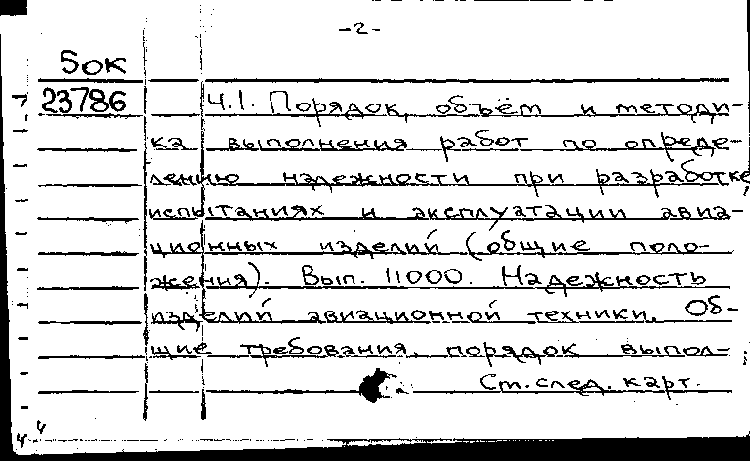 -2-
5ок
23786 Ч.1. Порядок, объём и методи-
ка выполнения работ по опреде-
лению надежности при разработке,
испытаниях и эксплуатации авиа-
ционных изделий (общие поло-
жения). Вып. 11000. Надежность
изделий авиационной техники. Об-
щие требования, порядок выпол-
См. след. карт.